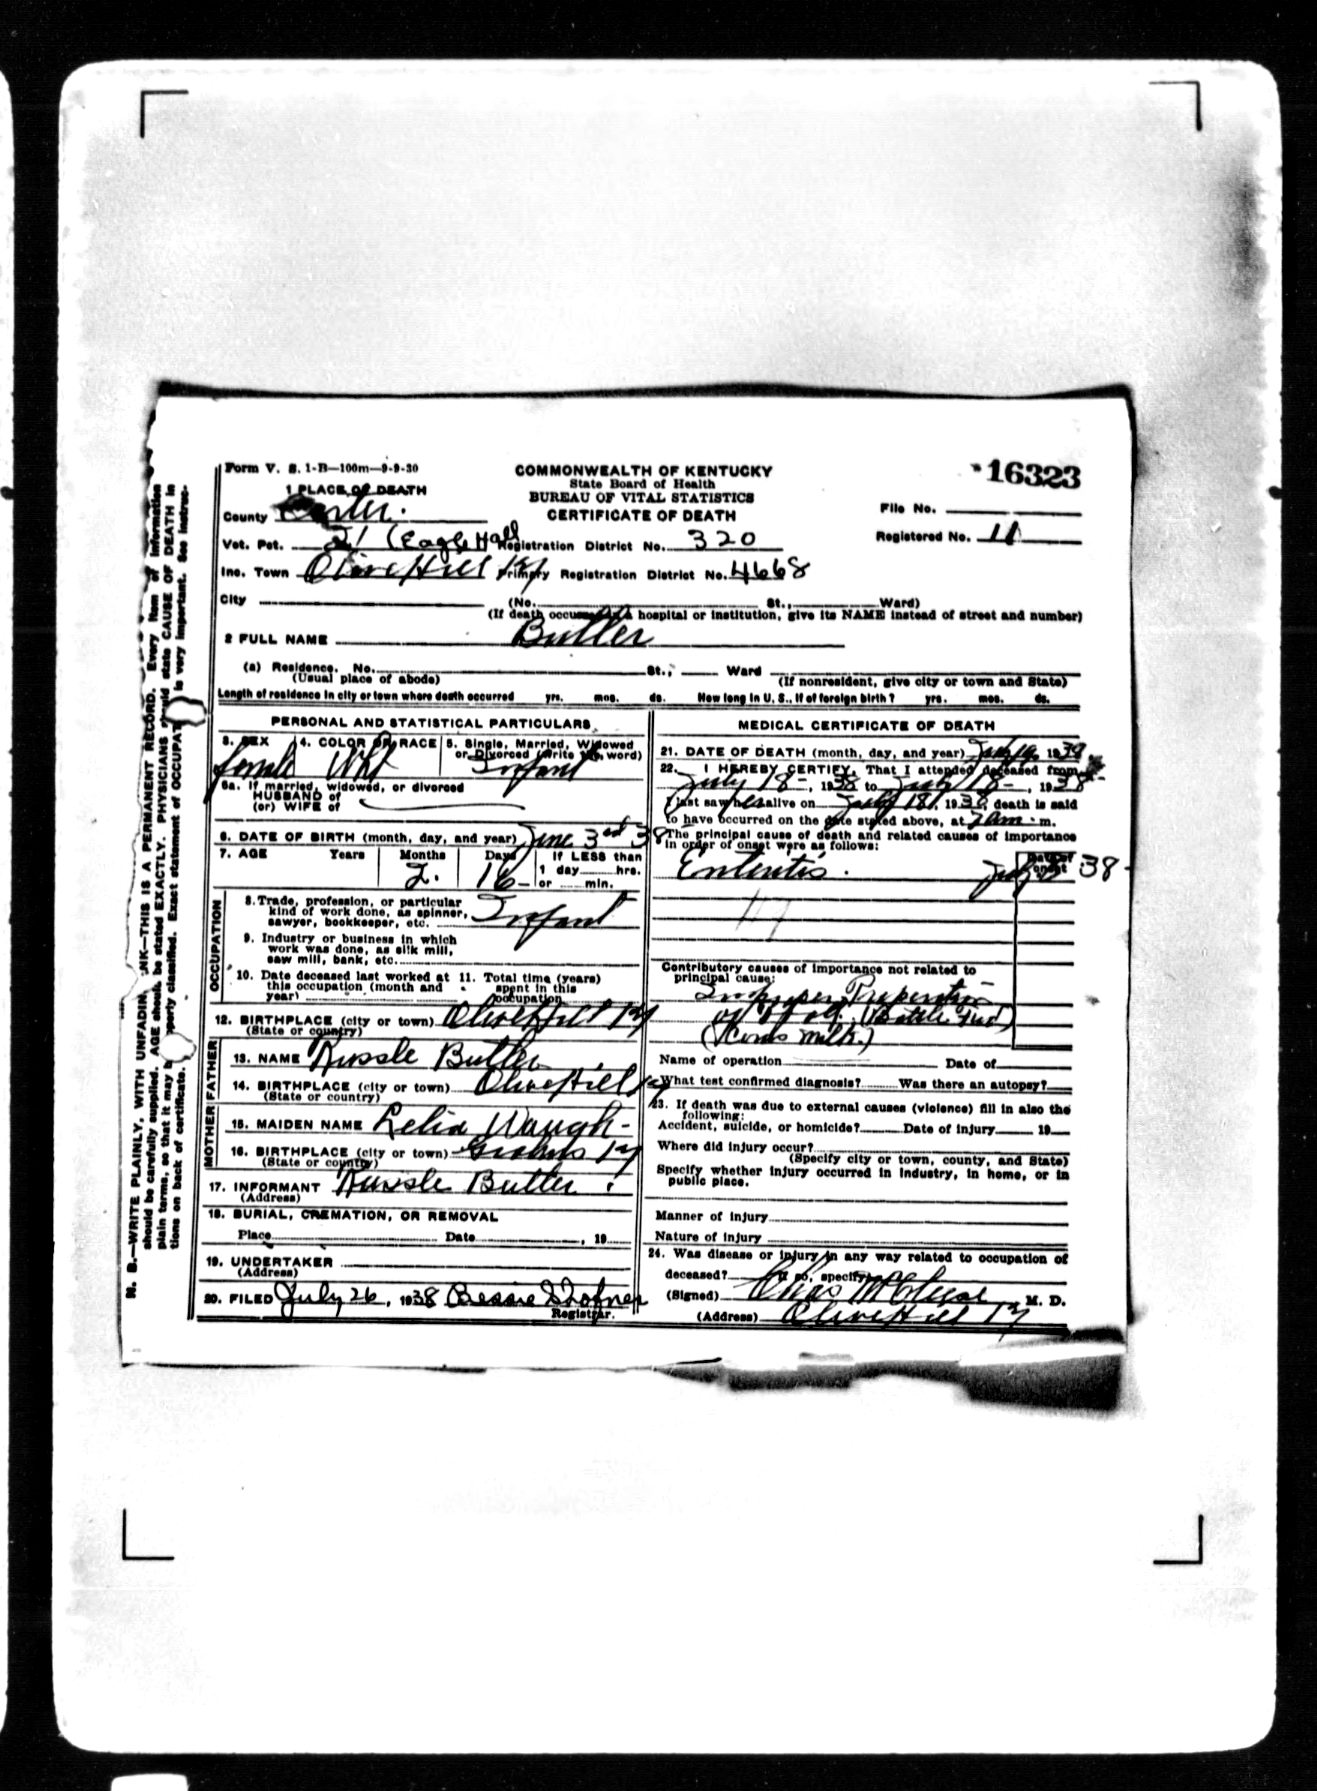 Form V. S. 1-B—100m—9-9-30
COMMONWEALTH OF KENTUCKY
State Board of Health
BUREAU OF VITAL STATISTICS
CERTIFICATE OF DEATH
16323
1 PLACE OF DEATH
County Carter.
File No.
Vot. Pct. 21 (Eagle Hall Registration District No. 320
Registered No. 11
Inc. Town Olive Hill Ky Primary Registration District No. 4668
City (No. St., Ward)
(If death occurred in a hospital or institution, give its NAME instead of street and number)
2 FULL NAME Butler
(a) Residence. No. St., Ward
(Usual place of abode) (If nonresident, give city or town and State)
Length of residence in city or town where death occurred yrs. mos. ds. How long in U. S., if of foreign birth? yrs. mos. ds.
PERSONAL AND STATISTICAL PARTICULARS
3. SEX 4. COLOR OR RACE 5. Single, Married, Widowed
or Divorced (write the word)
female Wht Infant
5a. If married, widowed, or divorced
HUSBAND of
(or) WIFE of
6. DATE OF BIRTH (month, day, and year) June 3rd 38
7. AGE Years Months Days If LESS than
1 day hrs.
2. 16 or min.
OCCUPATION
8. Trade, profession, or particular
kind of work done, as spinner,
sawyer, bookkeeper, etc. Infant
9. Industry or business in which
work was done, as silk mill,
saw mill, bank, etc.
10. Date deceased last worked at 11. Total time (years)
this occupation (month and spent in this
year) occupation
12. BIRTHPLACE (city or town) Olive Hill Ky
(State or country)
FATHER
13. NAME Russle Butler
14. BIRTHPLACE (city or town) Olive Hill Ky
(State or country)
MOTHER
15. MAIDEN NAME Lelia Waugh
16. BIRTHPLACE (city or town) Grahns Ky
(State or country)
17. INFORMANT Russle Butler
(Address)
18. BURIAL, CREMATION, OR REMOVAL
Place Date , 19
19. UNDERTAKER
(Address)
20. FILED July 26, 1938 Bessie Shofner
Registrar.
MEDICAL CERTIFICATE OF DEATH
21. DATE OF DEATH (month, day, and year) July 19, 1938
22. I HEREBY CERTIFY, That I attended deceased from
July 18-, 1938 to July 18-, 1938
I last saw her alive on July 18, 1938, death is said
to have occurred on the date stated above, at 7am m.
The principal cause of death and related causes of importance
in order of onset were as follows:
Date of
onset
Enteritis. July 38
Contributory causes of importance not related to
principal cause:
Improper Preperation
of food. (Bottle Fed)
(Cows milk.)
Name of operation Date of
What test confirmed diagnosis? Was there an autopsy?
23. If death was due to external causes (violence) fill in also the
following:
Accident, suicide, or homicide? Date of injury 19
Where did injury occur?
(Specify city or town, county, and State)
Specify whether injury occurred in industry, in home, or in
public place.
Manner of injury
Nature of injury
24. Was disease or injury in any way related to occupation of
deceased? If so, specify
(Signed) Chas McCleese, M. D.
(Address) Olive Hill Ky
N. B.—WRITE PLAINLY, WITH UNFADING INK—THIS IS A PERMANENT RECORD. Every item of information
should be carefully supplied. AGE should be stated EXACTLY. PHYSICIANS should state CAUSE OF DEATH in
plain terms, so that it may be properly classified. Exact statement of OCCUPATION is very important. See instruc-
tions on back of certificate.